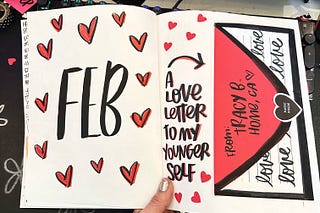 FEB
A
LOVE
LETTER
TO MY
YOUNGER
SELF
FROM:
TRACY B.
HOME, CA
love
love
love
love